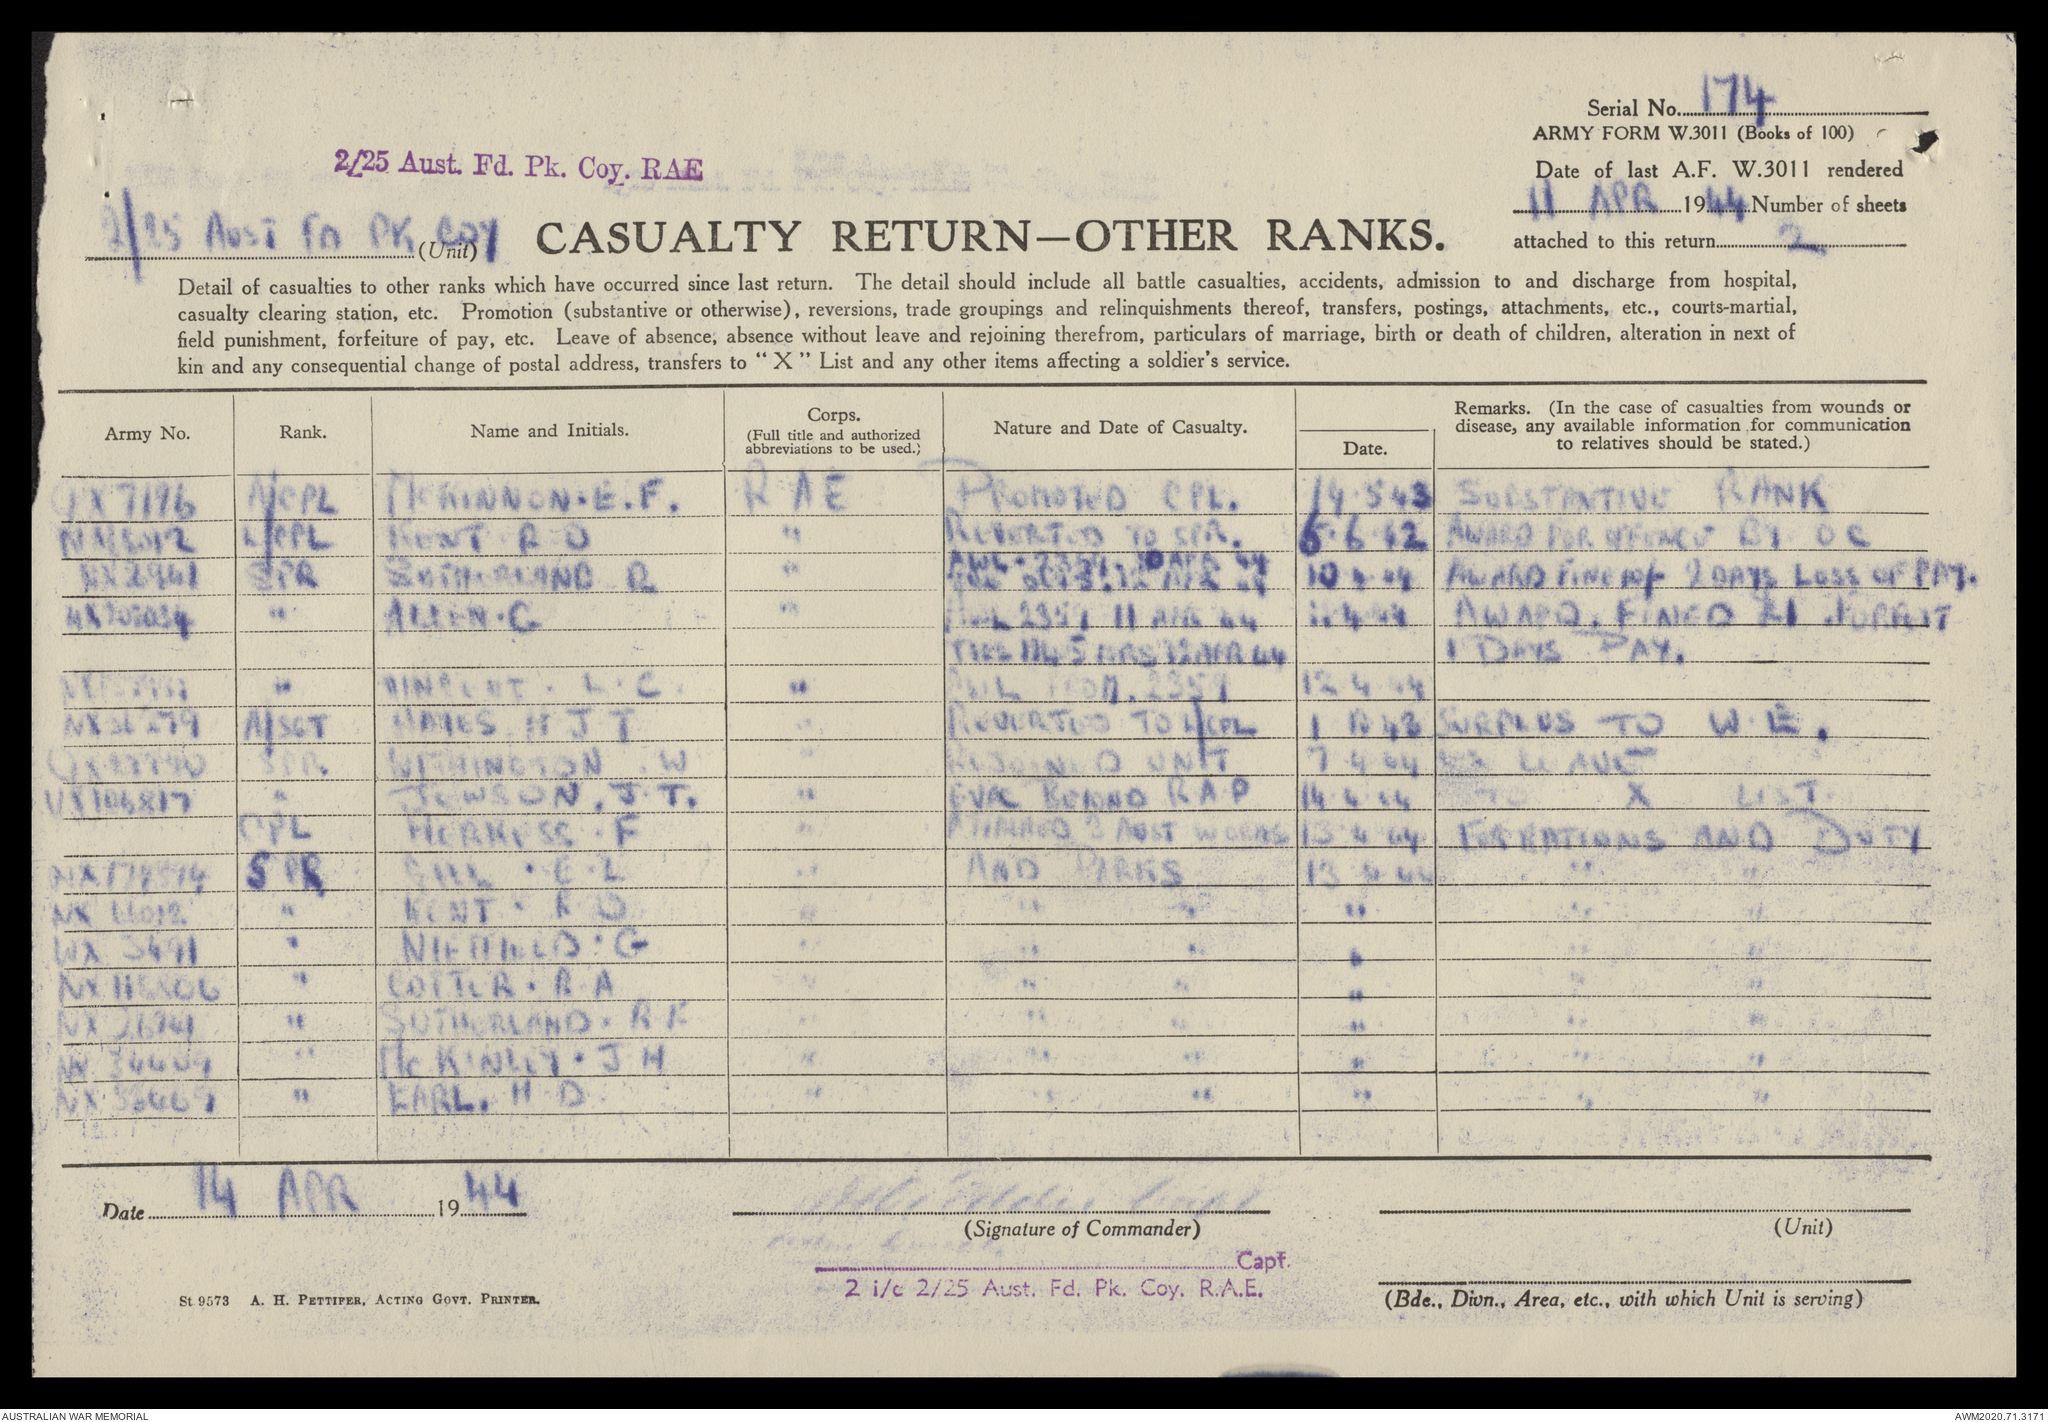 Serial No. 174
ARMY FORM W.3011 (Books of 100)
2/25 Aust. Fd. Pk. Coy. RAE
Date of last A.F. W.3011 rendered
11 APR 1944 Number of sheets
2/25 AUST FD PK COY (Unit)
CASUALTY RETURN—OTHER RANKS.
attached to this return 2
Detail of casualties to other ranks which have occurred since last return. The detail should include all battle casualties, accidents, admission to and discharge from hospital,
casualty clearing station, etc. Promotion (substantive or otherwise), reversions, trade groupings and relinquishments thereof, transfers, postings, attachments, etc., courts-martial,
field punishment, forfeiture of pay, etc. Leave of absence, absence without leave and rejoining therefrom, particulars of marriage, birth or death of children, alteration in next of
kin and any consequential change of postal address, transfers to "X" List and any other items affecting a soldier's service.
Army No. Rank. Name and Initials. Corps. (Full title and authorized abbreviations to be used.) Nature and Date of Casualty. Date. Remarks. (In the case of casualties from wounds or disease, any available information for communication to relatives should be stated.)
A/CPL McKINNON. E. F. RAE PROMOTED CPL. 14.5.43 SUBSTANTIVE RANK
L/CPL KENT R D " REVERTED TO SPR. 6.6.42 AWARD FOR OFFENCE BY OC
SPR SUTHERLAND R " AWL. 2359. 10 APR 44
10.4.44 AWARD FINE 10/- 2 DAYS LOSS OF PAY.
" ALLEN. G " AWL 2359 11 APR 44 11.4.44 AWARD. FINED £1 FORFEIT
1745 HRS 12 APR 44 1 DAYS PAY.
" L. C. " AWL FROM. 2359 12.4.44
A/SGT HAYES H J T " REVERTED TO L/CPL 1 43 SURPLUS TO W.E.
SPR WITHINGTON. W " REJOINED UNIT 7.4.44 EX LEAVE
" JEWSON. J. T. " EVAC BEYOND R A P 14.4.44 TO X LIST.
CPL HERKESS. F " ATTACHED 2 AUST WORKS 13.4.44 FOR RATIONS AND DUTY
SPR GILL. E. L " AND PARKS 13.4.44 " "
" KENT. R D " " " " " "
WX 3491 " G " " " " " "
" COTTER. R A " " " " " "
" SUTHERLAND. R F " " " " " "
" McKINLEY. J H " " " " " "
" EARL. H D. " " " " " "
Date 14 APR 1944
(Signature of Commander)
(Unit)
Capt.
2 i/c 2/25 Aust. Fd. Pk. Coy. R.A.E.
St 9573 A. H. PETTIFER, ACTING GOVT. PRINTER.
(Bde., Divn., Area, etc., with which Unit is serving)
AUSTRALIAN WAR MEMORIAL
AWM2020.71.3171